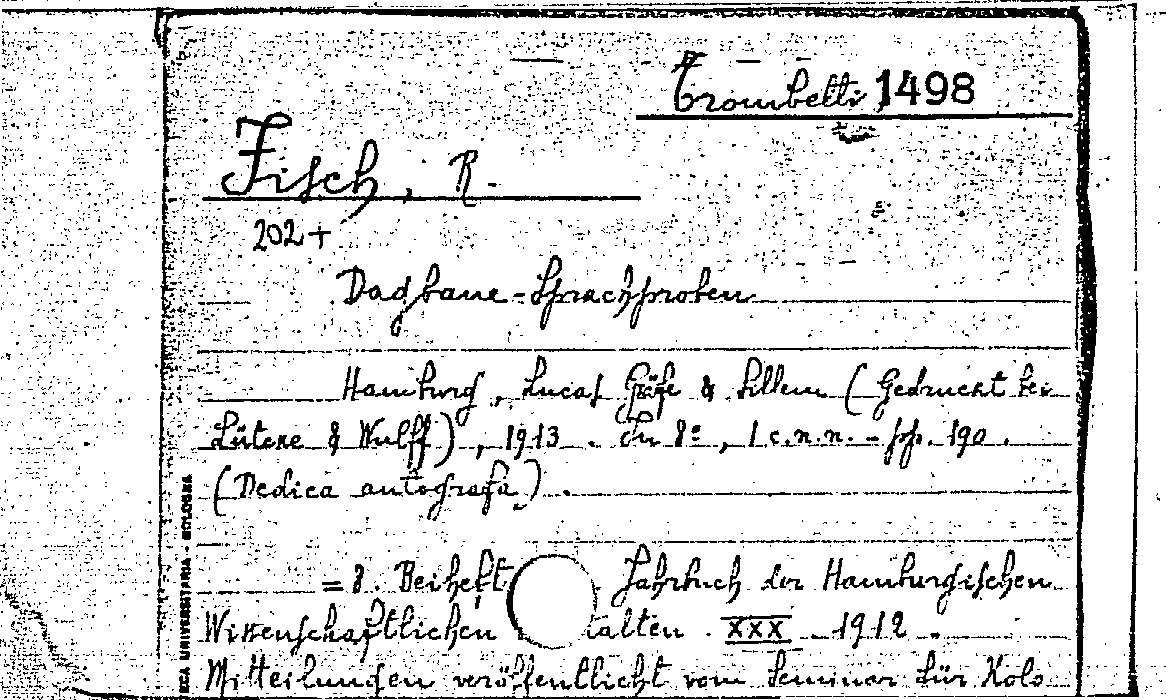 Trombetti 1498
Fisch, R.
202+
Dagbane-Sprachproben
Hamburg, Lucas Gräfe & Sillem (Gedruckt bei
Lütcke & Wulff), 1913. In 8º, 1 c.n.n. - pp. 190.
(Dedica autografa).
= 8. Beiheft Jahrbuch der Hamburgischen
Wissenschaftlichen talten. XXX 1912.
Mitteilungen veröffentlicht vom Seminar für Kols
ECA UNIVERSITARIA - BOLOGNA